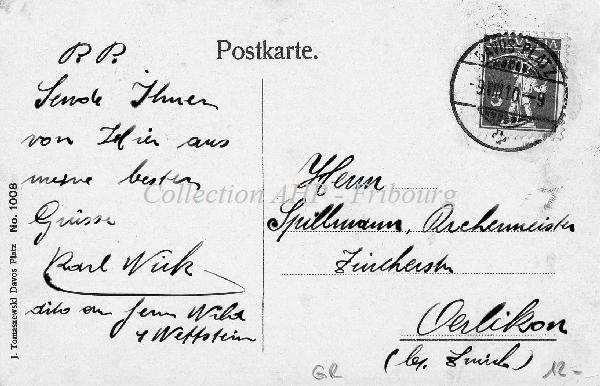 Postkarte.
P. P.
Sende Ihnen
von Hier aus
meine besten
Grüsse
Karl Wick
dito an Herrn Wild
& Wettstein
DAVOS-PLATZ
-9.VIII.10.-9
Herrn
Spillmann,
Zürcherstr
Oerlikon
(bz. Zürich)
Collection AHP - Fribourg
J. Tomaszewski Davos Platz No. 1008
GR
12.-